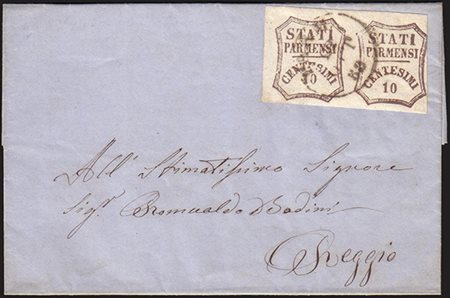 STATI
PARMENSI
CENTESIMI
10
STATI
PARMENSI
CENTESIMI
10
All' Stimatissimo Signore
Sigr. Romualdo Bodini
Reggio